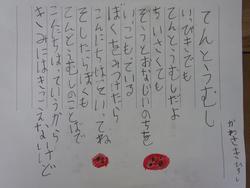 てんとうむし
かわさきひろし
いっぴきでも
てんとうむしだよ
ちいさくても
ぞうとおなじいのちを
いっこもっている
ぼくをみつけたら
こんにちはっていってね
そしたらぼくも
てんとうむしのことばで
こんにちはっていうから
きみにはきこえないけど